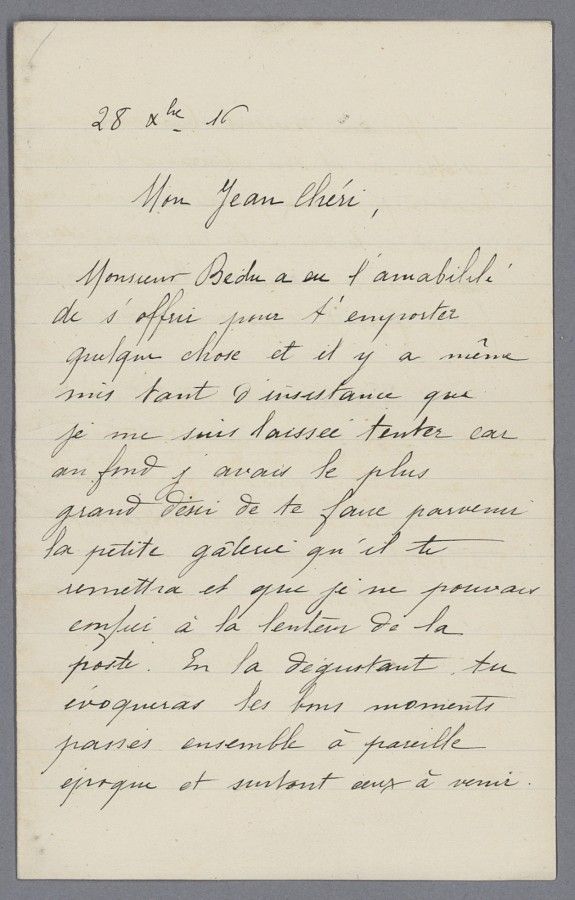 28 Xbre 16
Mon Jean Chéri,
Monsieur Bedu a eu l'amabilité
de s'offrir pour t'emporter
quelque chose et il y a même
mis tant d'insistance que
je me suis laissée tenter car
au fond j'avais le plus
grand désir de te faire parvenir
la petite gâterie qu'il te
remettra et que je ne pouvais
confier à la lenteur de la
poste. En la dégustant tu
évoqueras les bons moments
passés ensemble à pareille
époque et surtout ceux à venir.